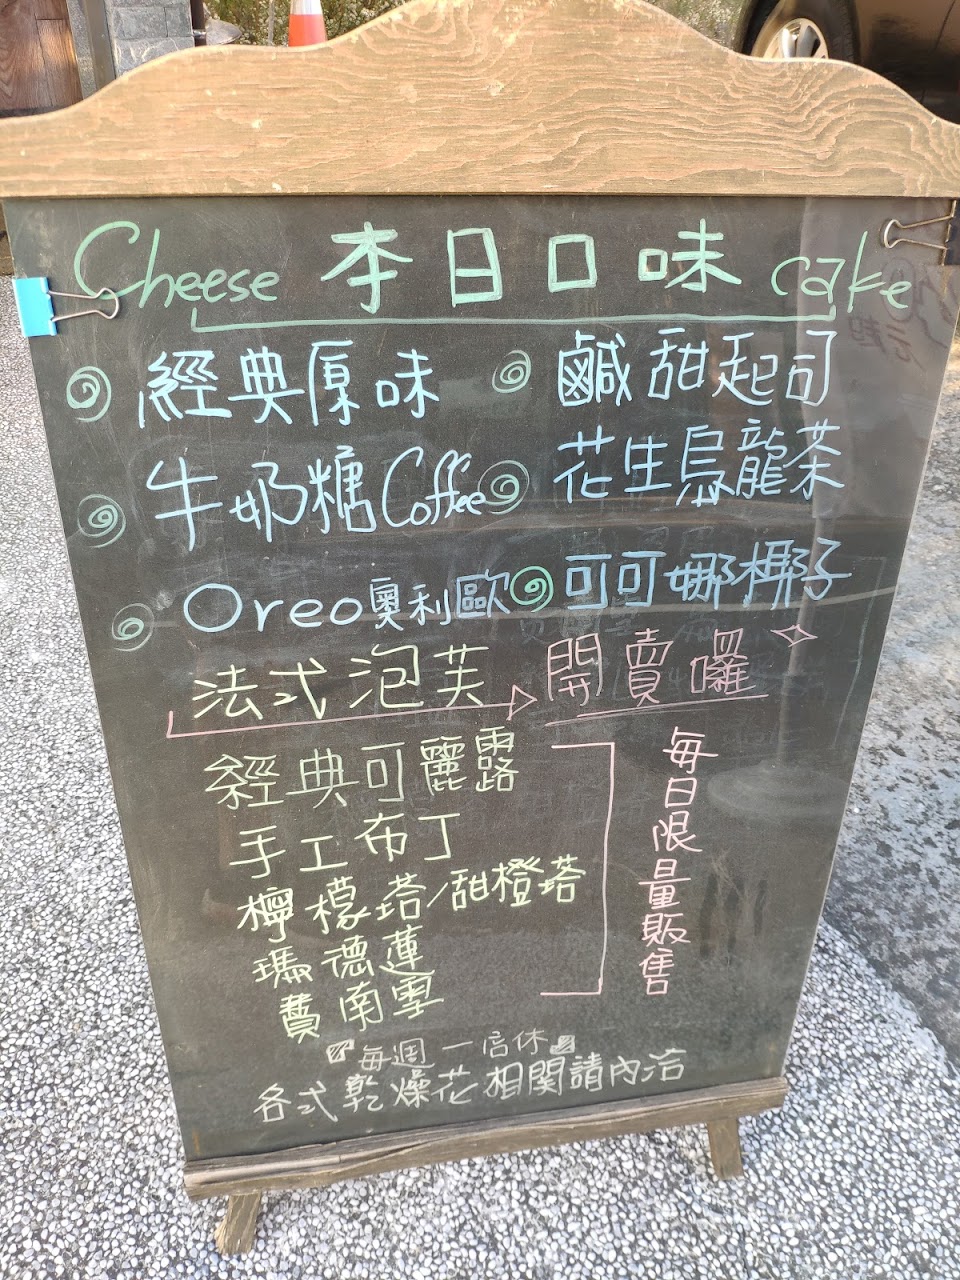 Cheese 本日口味 cake
經典原味 鹹甜起司
牛奶糖Coffee 花生烏龍茶
Oreo奧利歐 可可娜椰子
法式泡芙 開賣囉
經典可麗露
手工布丁
檸檬塔/甜橙塔
瑪德蓮
費南雪
每日限量販售
每週一店休
各式乾燥花相關請內洽